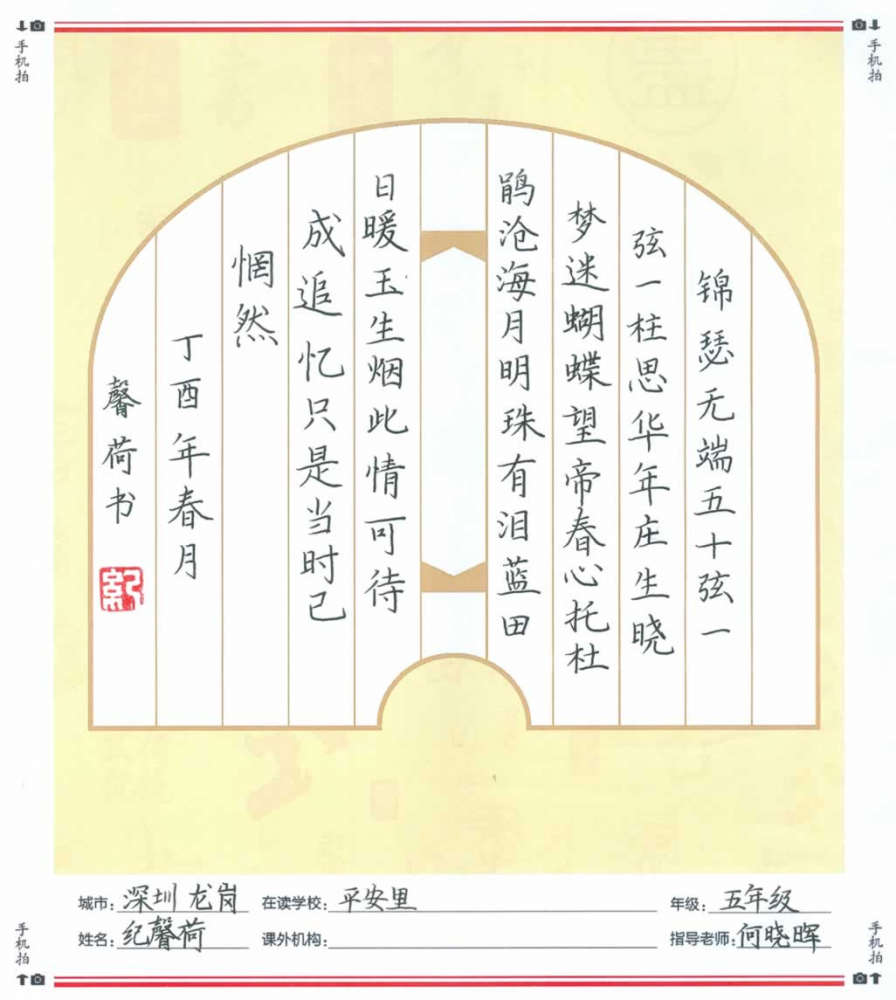 手机拍
手机拍
锦瑟无端五十弦一
弦一柱思华年庄生晓
梦迷蝴蝶望帝春心托杜
鹃沧海月明珠有泪蓝田
日暖玉生烟此情可待
成追忆只是当时已
惘然
丁酉年春月
馨荷书
紀
城市: 深圳龙岗 在读学校: 平安里 年级: 五年级
姓名: 纪馨荷 课外机构: 指导老师: 何晓晖
手机拍
手机拍